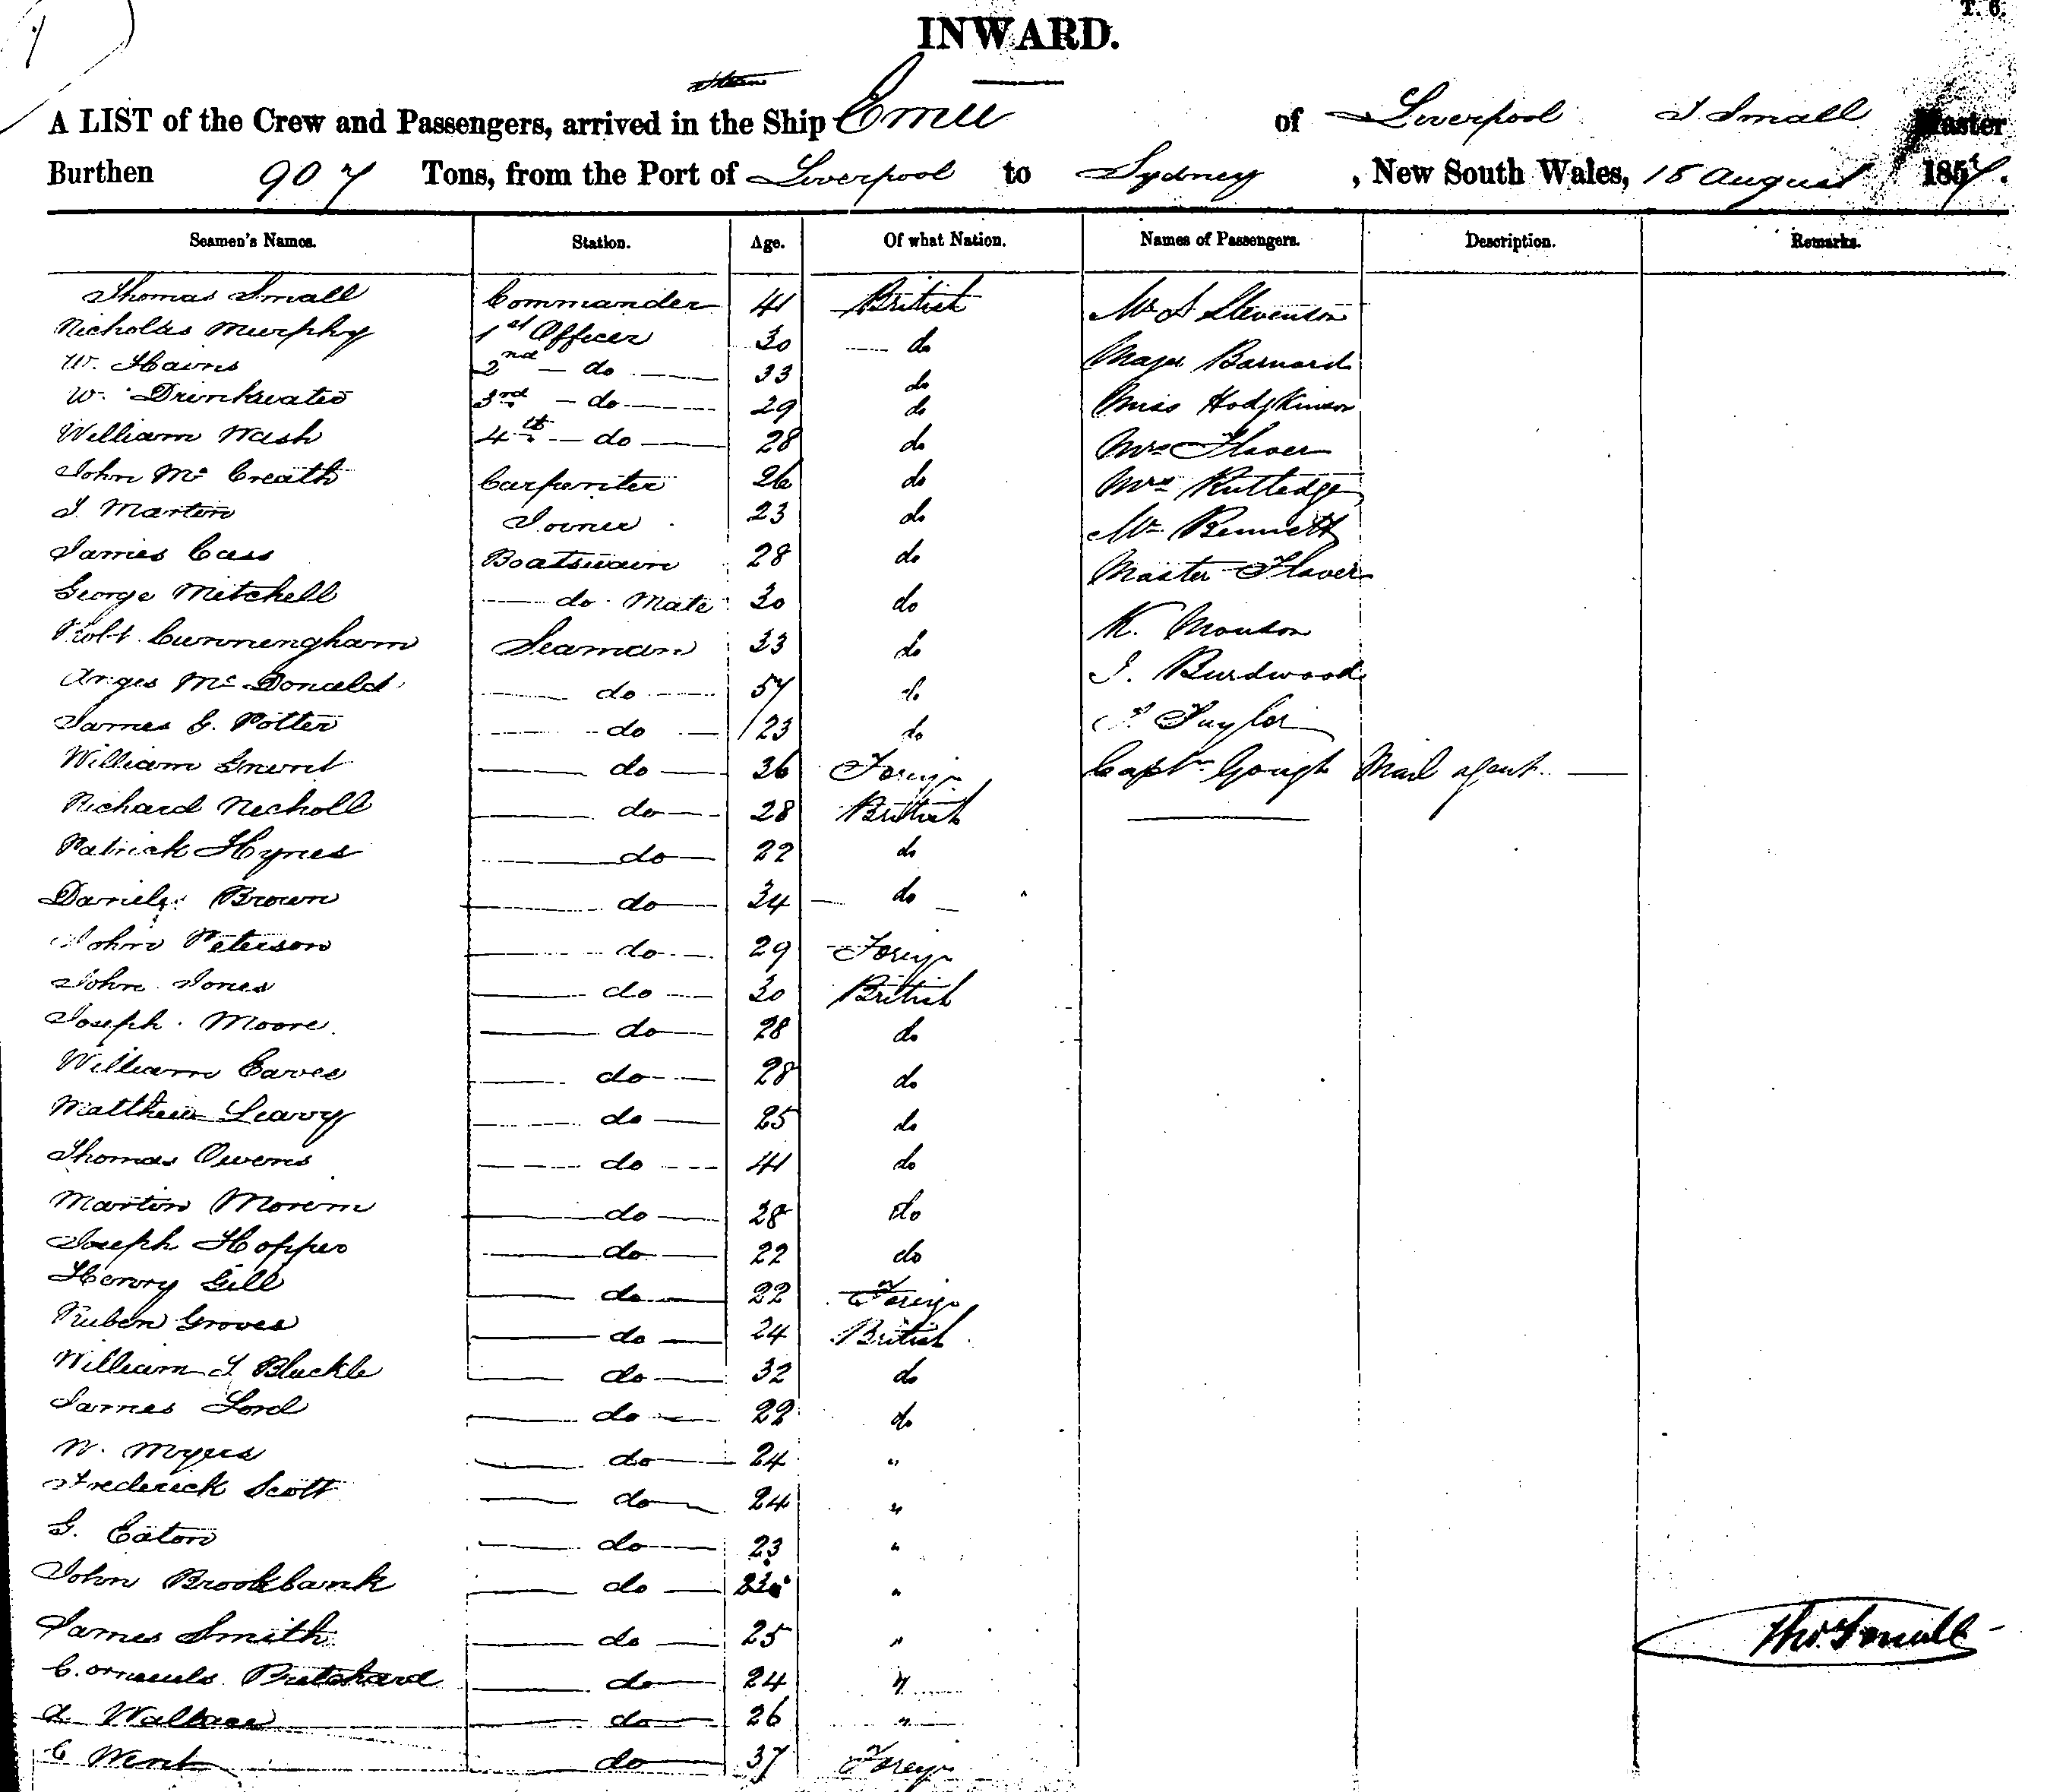 T. 6.
INWARD.
Steam
A LIST of the Crew and Passengers, arrived in the Ship Emu of Liverpool T Small Master
Burthen 907 Tons, from the Port of Liverpool to Sydney, New South Wales, 15 August 1857.
Seamen's Names. Station. Age. Of what Nation. Names of Passengers. Description. Remarks.
Thomas Small Commander 41 British Mr S Stevenson
Nicholas Murphy 1st Officer 30 do Major Barnard
W. Hains 2nd do 33 do Miss Hodgkinson
W. Drinkwater 3rd do 29 do Mrs Flaver
William Wash 4th do 28 do Mrs Rutledge
John Mc Creath Carpenter 26 do Mr Bennett
J. Martin Joiner 23 do Master Flaver
James Cass Boatswain 28 do K. Monson
George Mitchell do Mate 30 do J. Burdwood
Robt Cunningham Seaman 33 do Taylor
Anges Mc Donald do 57 do Captn Gough Mail agent
James G. Potter do 23 do
William Grunt do 36 Foreign
Richard Necholl do 28 British
Patrick Hynes do 22 do
Daniel Brown do 34 do
John Peterson do 29 Foreign
John Jones do 30 British
Joseph Moore do 28 do
William Eaves do 28 do
Matthew Leavy do 25 do
Thomas Owens do 41 do
Martin Morem do 28 do
Joseph Hopper do 22 do
Henry Gill do 22 Foreign
Ruben Groves do 24 British
William J Bluckle do 32 do
James Lord do 22 do
W. Myers do 24 "
Frederick Scott do 24 "
G. Eaton do 23 "
John Brookbank do 23 "
James Smith do 25 " Thos. Small
Corneuls Pritchard do 24 "
A Wallace do 26 "
C Went do 37 Foreign